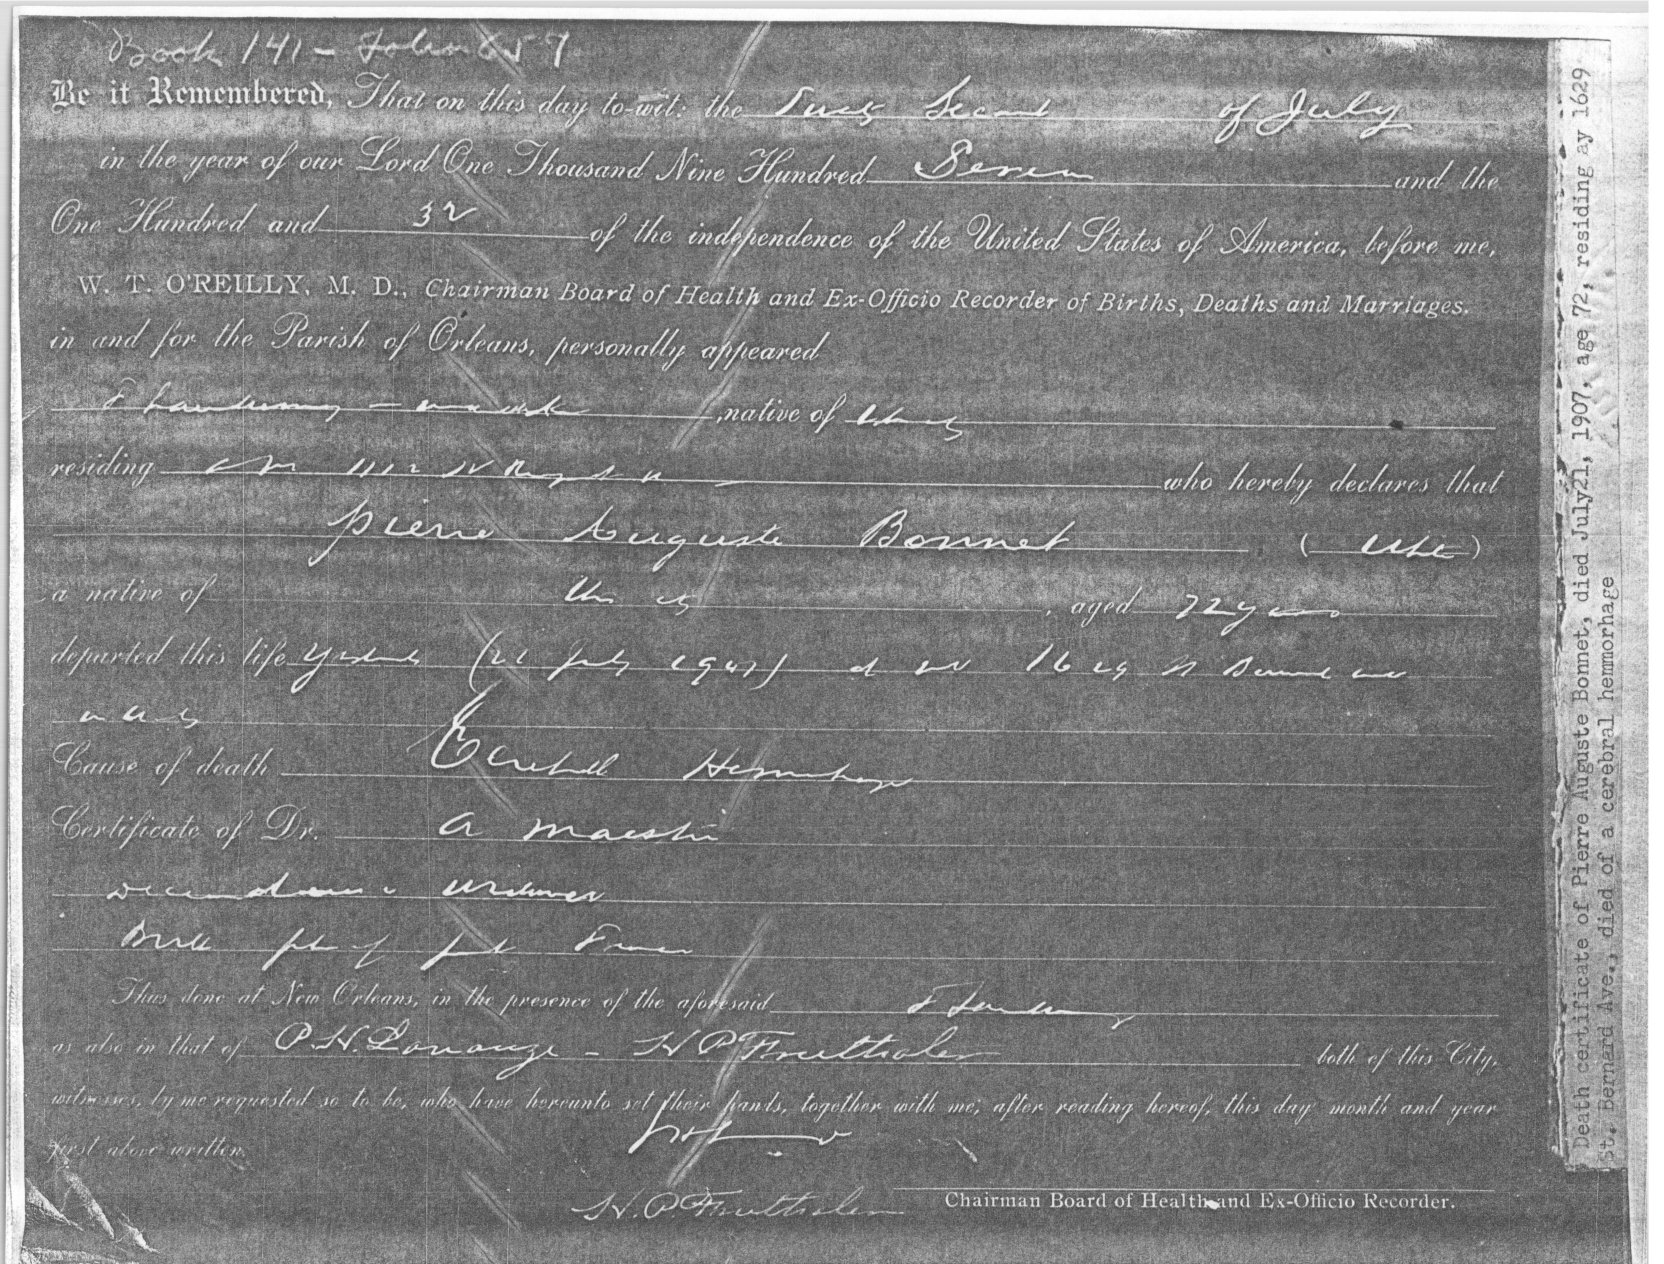 Book 141 - Folio 657
Be it Remembered, That on this day to-wit: the Twenty Second of July
in the year of our Lord One Thousand Nine Hundred Seven and the
One Hundred and 32 of the independence of the United States of America, before me,
W. T. O'REILLY, M. D., Chairman Board of Health and Ex-Officio Recorder of Births, Deaths and Marriages.
in and for the Parish of Orleans, personally appeared
, native of
residing who hereby declares that
Pierre Auguste Bonnet (White)
a native of this city, aged 72 years
departed this life Yesterday (21 July 1907) at No 1629 St Bernard Ave
in this city
Cause of death Cerebral Hemorrhage
Certificate of Dr. A Maestri
Deceased was a widower
Birth place of France
Thus done at New Orleans, in the presence of the aforesaid
as also in that of P. H. Lanauze - H P Fruthaler both of this City,
witnesses, by me requested so to be, who have hereunto set their hands, together with me, after reading hereof, this day month and year
first above written.
H. P Fruthaler
Chairman Board of Health and Ex-Officio Recorder.
Death certificate of Pierre Auguste Bonnet, died July21, 1907, age 72, residing ay 1629
St. Bernard Ave., died of a cerebral hemmorhage